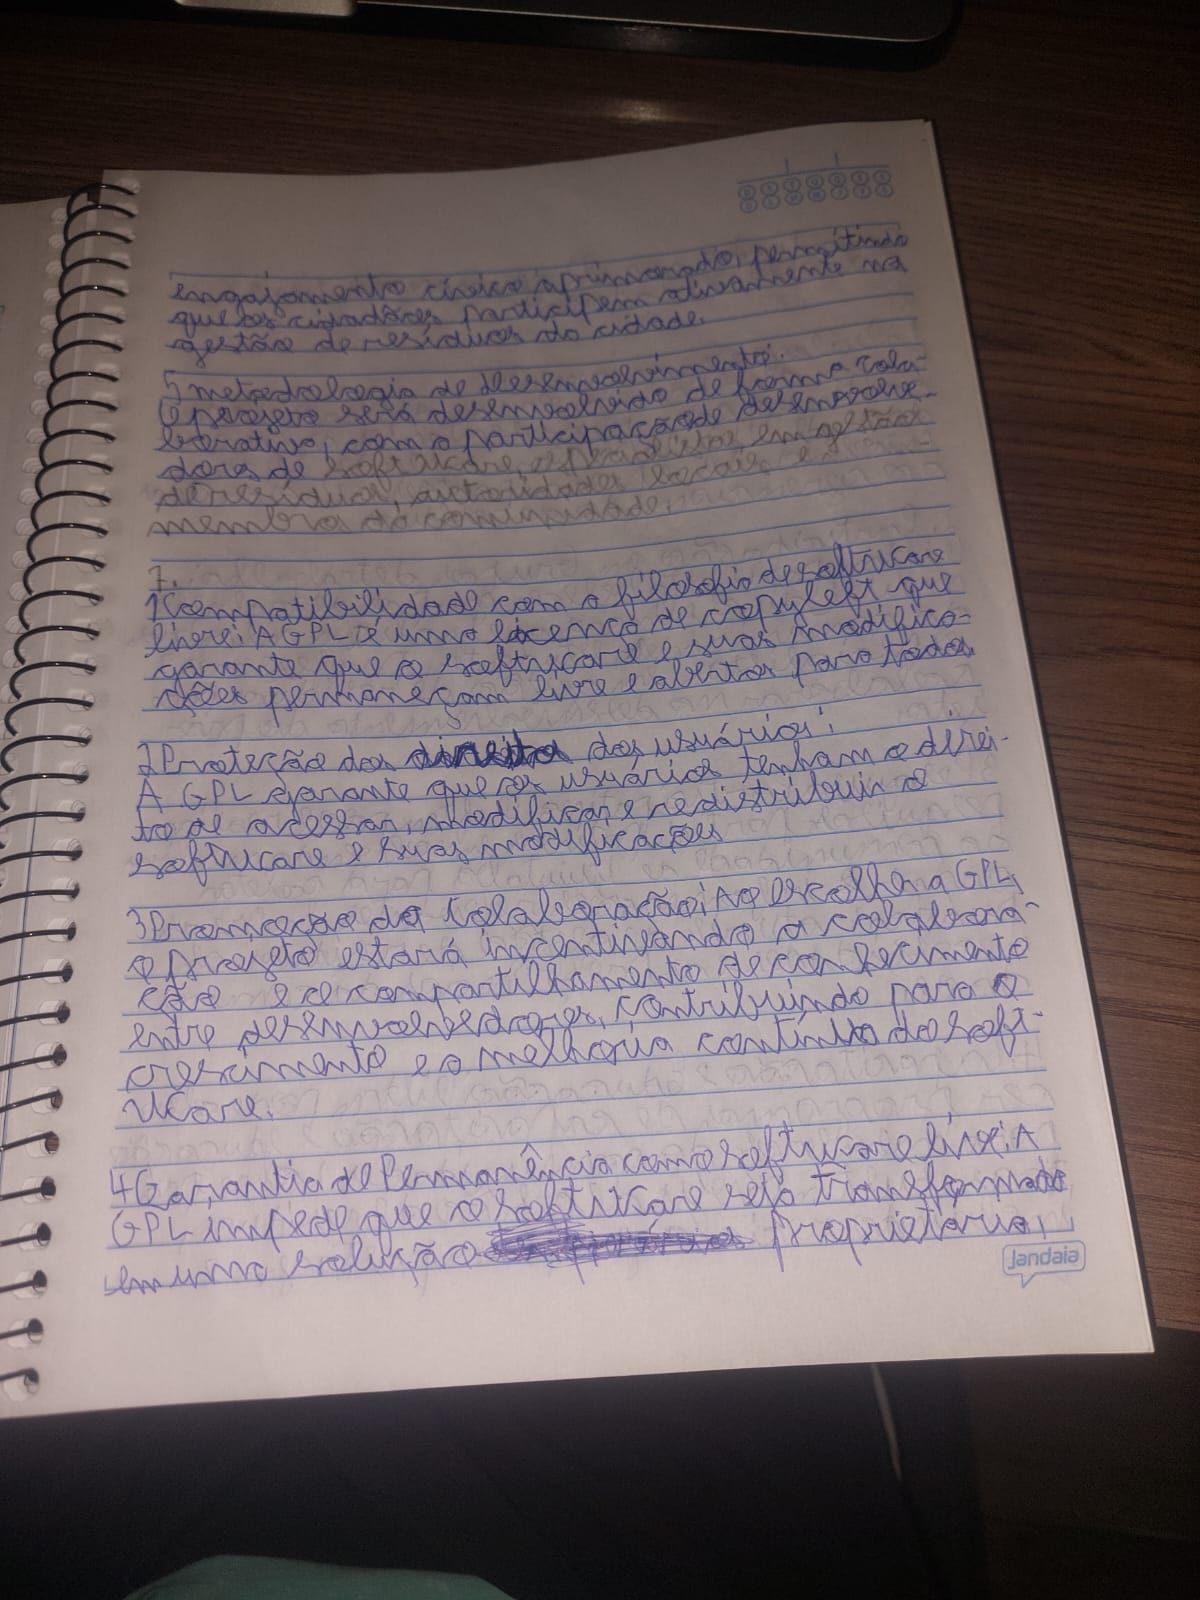 engajamento cívico aprimorado, permitindo
que os cidadões participem ativamente na
gestão de resíduos da cidade.
5 metodologia de desenvolvimento:
O projeto será desenvolvido de forma cola-
borativa, com a participação de desenvolve-
dores de software, especialistas em gestão
de resíduos, autoridades locais e
membros da comunidade.
7.
1 Compatibilidade com a filosofia de software
livre: A GPL é uma licença de copyleft que
garante que o software e suas modifica-
ções permaneçam livre e abertos para todos
2 Proteção dos direitos dos usuários:
A GPL garante que os usuários tenham o direi-
to de acessar, modificar e redistribuir o
software e suas modificações
3 Promoção da Colaboração: Ao escolher a GPL,
o projeto estará incentivando a colabora-
ção e o compartilhamento de conhecimento
entre desenvolvedores, contribuindo para o
crescimento e a melhoria contínua do soft-
ware.
4 Garantia de Permanência como software livre: A
GPL impede que o software seja transformado
em uma solução proprietária,
Jandaia